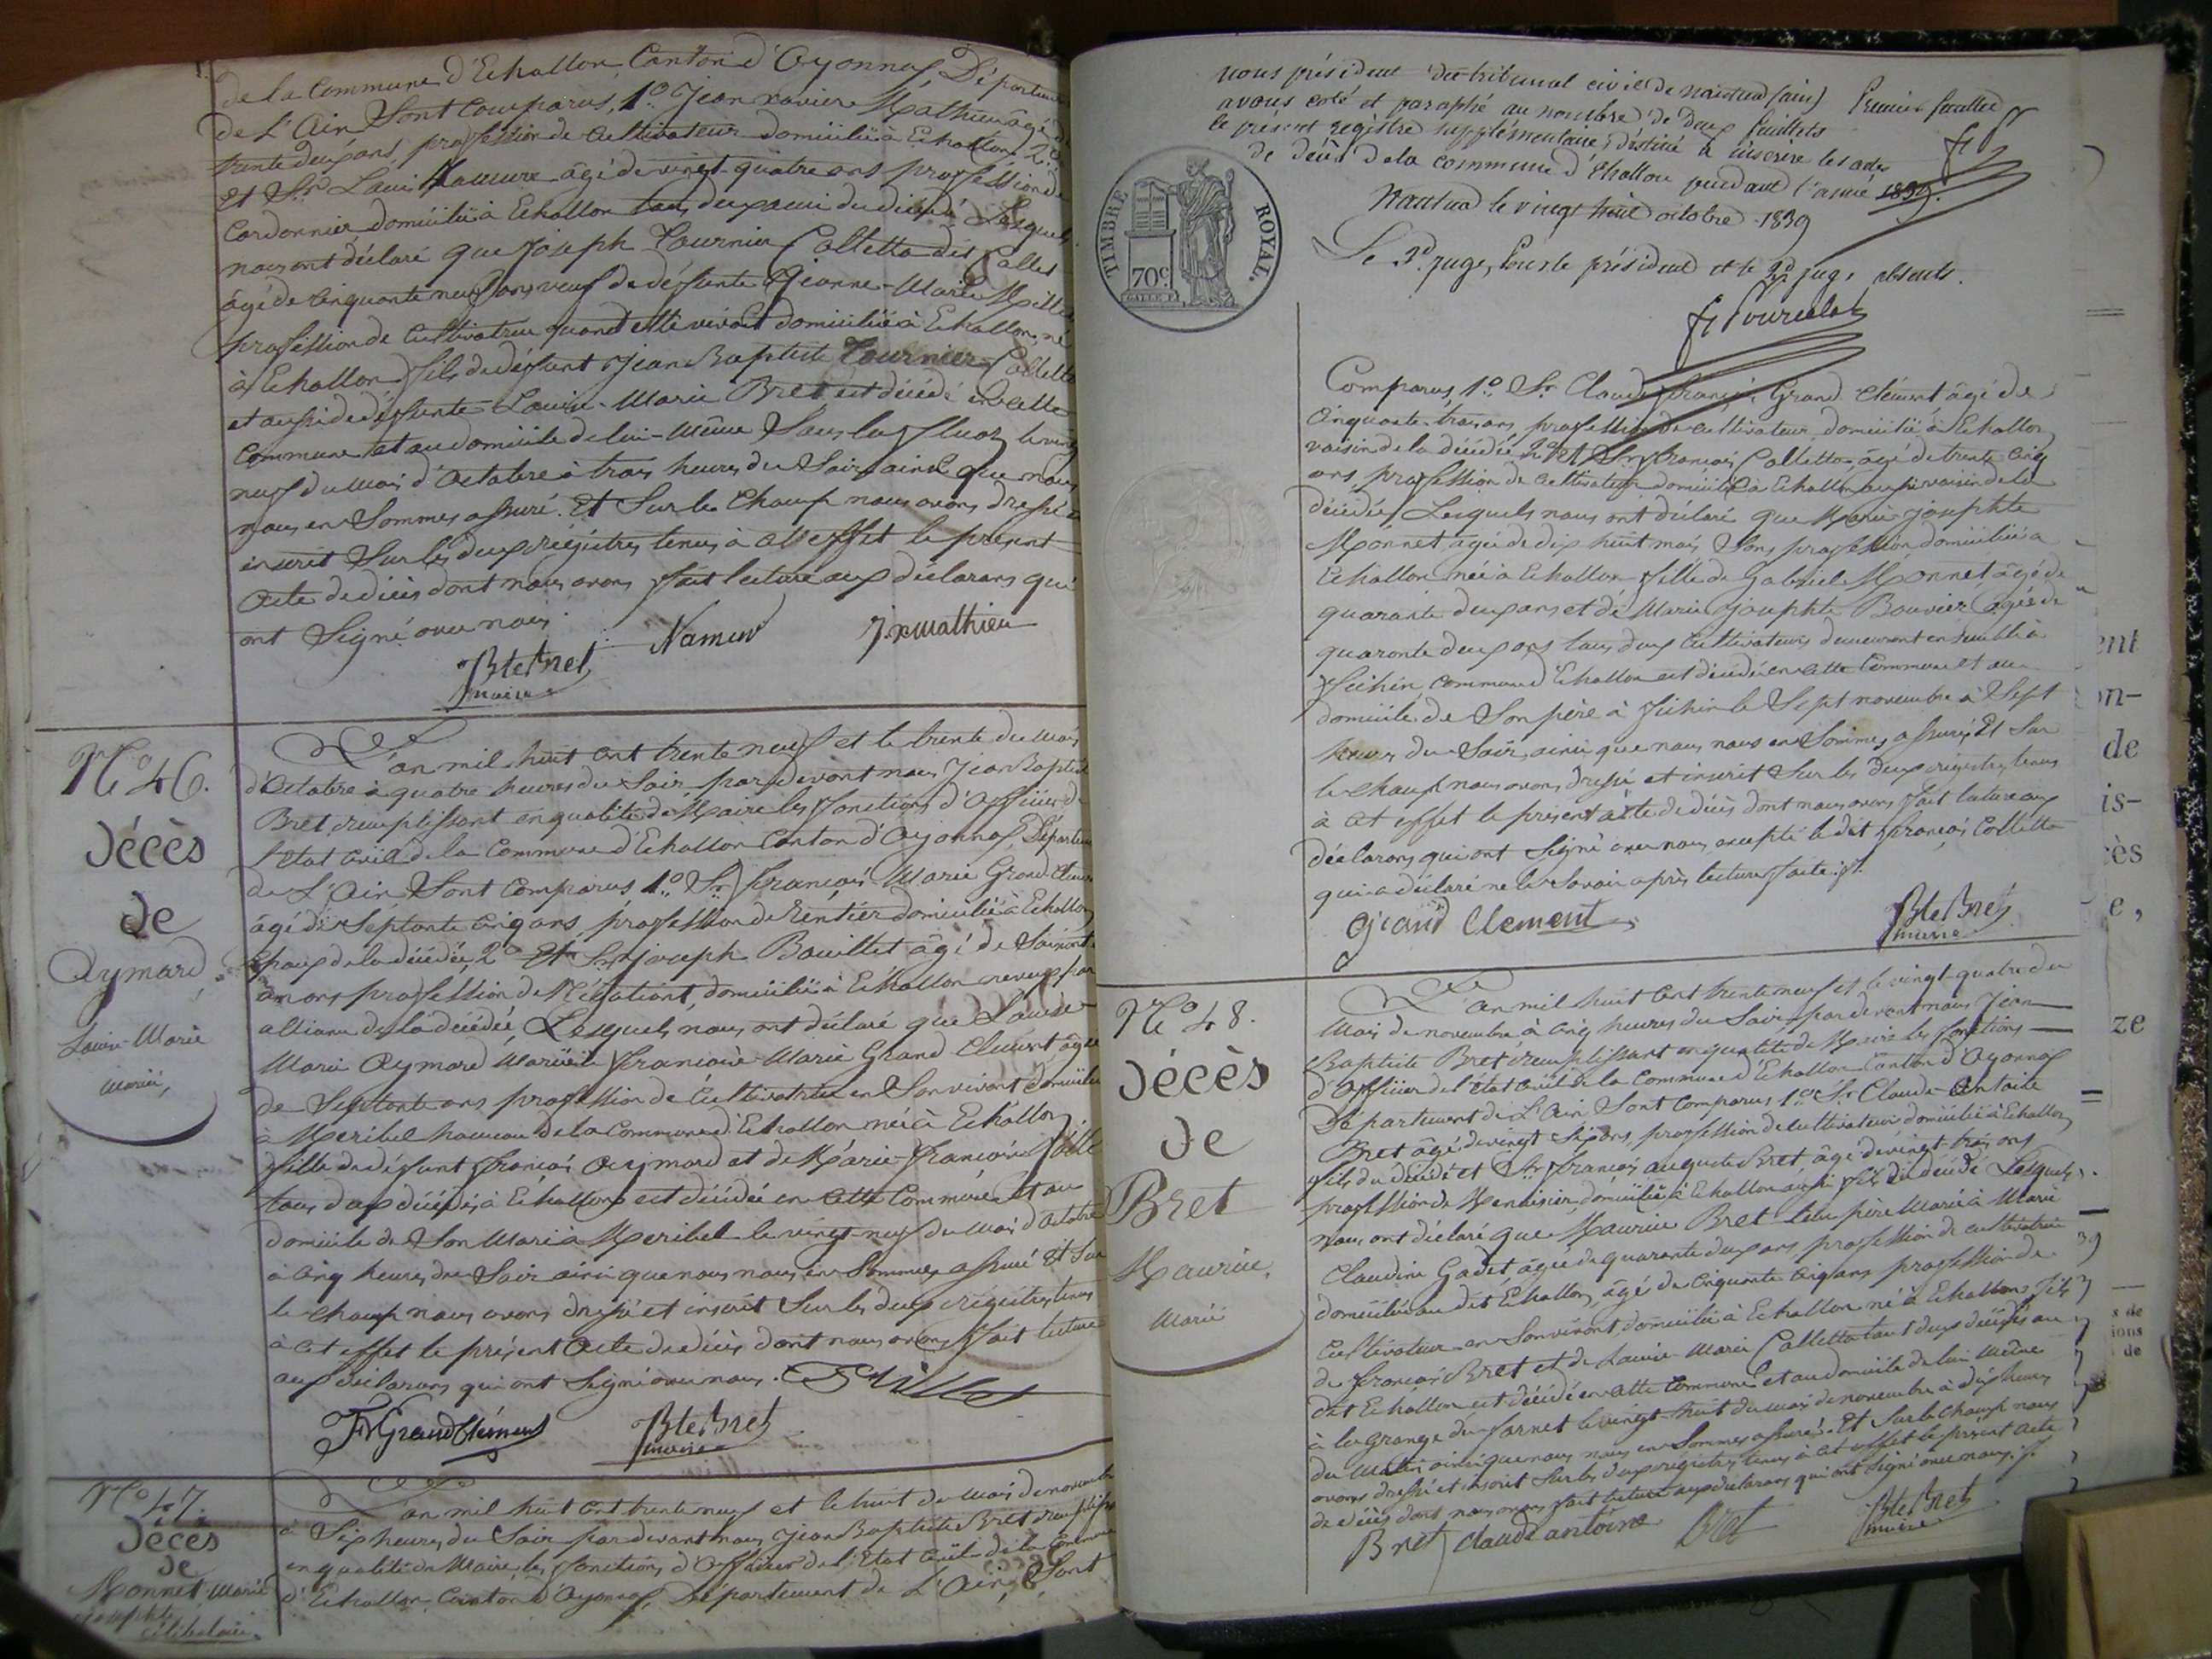 de la Commune d'Echallon Canton d'Oyonnax, Département
de L'Ain, Sont Comparus, 1º Jean xavier Mathieu âgé de
trente deux ans, profession de Cultivateur domicilié à Echallon, 2º
et Sr Louis Namure âgé de vingt-quatre ans profession de
Cordonnier domicilié à Echallon tous deux ami du décédé Lesquels
nous ont déclaré que Joseph Tournier Colletta dit
âgé de Cinquante neuf ans, veuf de défunte Jeanne-Marie Millet
profession de Cultivatrice quand elle vivait domiciliée à Echallon, né
à Echallon fils de défunt Jean Baptiste Tournier Colletta
et aussi de défunte Louise-Marie Bret est décédé en cette
Commune et au domicile de lui-Même Sous le le vingt
neuf du mois d'Octobre à trois heures du Soir, ainsi que nous
nous en Sommes assuré. Et Sur le Champ nous avons dressé et
inscrit Sur les deux régistres tenus à cet effet le présent
Acte de décès dont nous avons fait lecture aux déclarans qui
ont Signé avec nous
Namur Jxmathieu
Bte Bret
maire
Nº 46.
Décès
de
Aymard
Louise-Marie
mariée,
L'an mil huit cent trente neuf et le trente du mois
d'Octobre à quatre heures du Soir par devant nous Jean Baptiste
Bret remplissant en qualité de Maire les fonctions d'Officier de
l'Etat Civil de la Commune d'Echallon Canton d'Oyonnax, Département
de L'Ain, Sont Comparus 1º Sr François-Marie Grand-Clément
âgé de Septante cinq ans, profession de Rentier domicilié à Echallon
Epoux de la décédée, 2º Et Sr joseph Bouillet âgé de Soixante
ans profession de Négotiant, domicilié à Echallon neveux par
alliance de la décédée, Lesquels, nous ont déclaré que Louise
Marie Aymard Mariée à François-Marie Grand Clément âgée
de Septante ans profession de Cultivatrice en Son vivant domiciliée
à Meribel hameau de la Commune d'Echallon née à Echallon
fille de défunt François Aymard et de Marie-Françoise
tous deux décédés à Echallon est décédée en cette Commune et au
domicile de Son Mari à Meribel le vingt-neuf du Mois d'Octobre
à Cinq heures du Soir ainsi que nous nous en Sommes assuré Et Sur
le champ nous avons dressé et inscrit Sur les deux régistres tenus
à cet effet le présent Acte de décès dont nous avons fait lecture
aux déclarans qui ont Signé avec nous.
FM Grand Clément Bte Bret
maire
Nº 47.
Décès
de
Monnet, Marie
josephte
célibataire.
L'an mil huit cent trente neuf et le huit du Mois de novembre
à Six heures du Soir par devant nous Jean Baptiste Bret remplissant
en qualité de Maire les fonctions d'Officier de l'Etat Civil de la Commune
d'Echallon Canton d'Oyonnax, Département de L'Ain, Sont
nous président du tribunal civil de nantua (ain) Premier feuillet
avons coté et paraphé au nombre de deux feuillets
le présent registre supplémentaire, destiné à inscrire les actes
de décès de la commune d'Echallon pendant l'année 1839.
Nantua le vingt huit octobre 1839
Le 3d juge, pour le président et le 2d juge absents.
TIMBRE ROYAL.
70c
Comparus, 1º Sr Claude françois Grand-Clément, âgé de
Cinquante-trois ans, profession de Cultivateur domicilié à Echallon
voisin de la décédée, 2º Et Sr françois Colletta âgé de trente Cinq
ans profession de Cultivateur domicilié à Echallon aussi voisin de la
décédée, Lesquels nous ont déclaré que Marie-josephte
Monnet, âgée de dix huit mois, Sans profession, domiciliée à
Echallon née à Echallon fille de Gabriel Monnet, âgé de
quarante deux ans et de Marie josephte Bouvier âgée de
quarante deux ans tous deux Cultivateurs demeurant ensemble à
commune d'Echallon est décédée en cette Commune et au
domicile de Son père à le Sept novembre à Sept
heures du Soir, ainsi que nous nous en Sommes assurés, Et Sur
le champ nous avons dressé et inscrit Sur les deux registres tenus
à cet effet le présent acte de décès dont nous avons fait lecture aux
déclarans qui ont Signé avec nous, excepté le dit françois Colletta
qui a déclaré ne le Savoir après lecture faite.
Grand Clement Bte Bret
maire
Nº 48.
Décès
de
Bret
Maurice,
Marié
L'an mil huit cent trente neuf et le vingt-quatre du
Mois de novembre à cinq heures du Soir par devant nous Jean
Baptiste Bret remplissant en qualité de Maire les fonctions
d'Officier de l'état Civil de la Commune d'Echallon Canton d'Oyonnax
Département de L'Ain Sont Comparus 1º Sr Claude-Antoine
Bret âgé de vingt Six ans, profession de Cultivateur domicilié à Echallon
fils du décédé et Sr françois auguste Bret âgé de vingt trois ans
profession de Menuisier, domicilié à Echallon aussi fils du décédé Lesquels
nous ont déclaré que Maurice Bret leur père Marié à Marie
Claudine Gadet âgée de quarante deux ans, profession de cultivatrice
domiciliée au dit Echallon, âgé de Cinquante Cinq ans profession de
Cultivateur en Son vivant, domicilié à Echallon né à Echallon fils
de françois Bret et de Louise-Marie Colletta tout deux décédés au
dit Echallon est décédé en cette Commune et au domicile de lui Même
à la Grange du le vingt- du mois de novembre à dix heures
du Matin ainsi que nous nous en Sommes assurés. Et Sur le Champ nous
avons dressé et inscrit Sur les deux registres tenus à cet effet le présent Acte
de décès dont nous avons fait lecture aux déclarans qui ont Signé avec nous.
Bret claude antoine Bret Bte Bret
maire
ent
on-
de
is-
cès
e,
ze
s de
ions
de